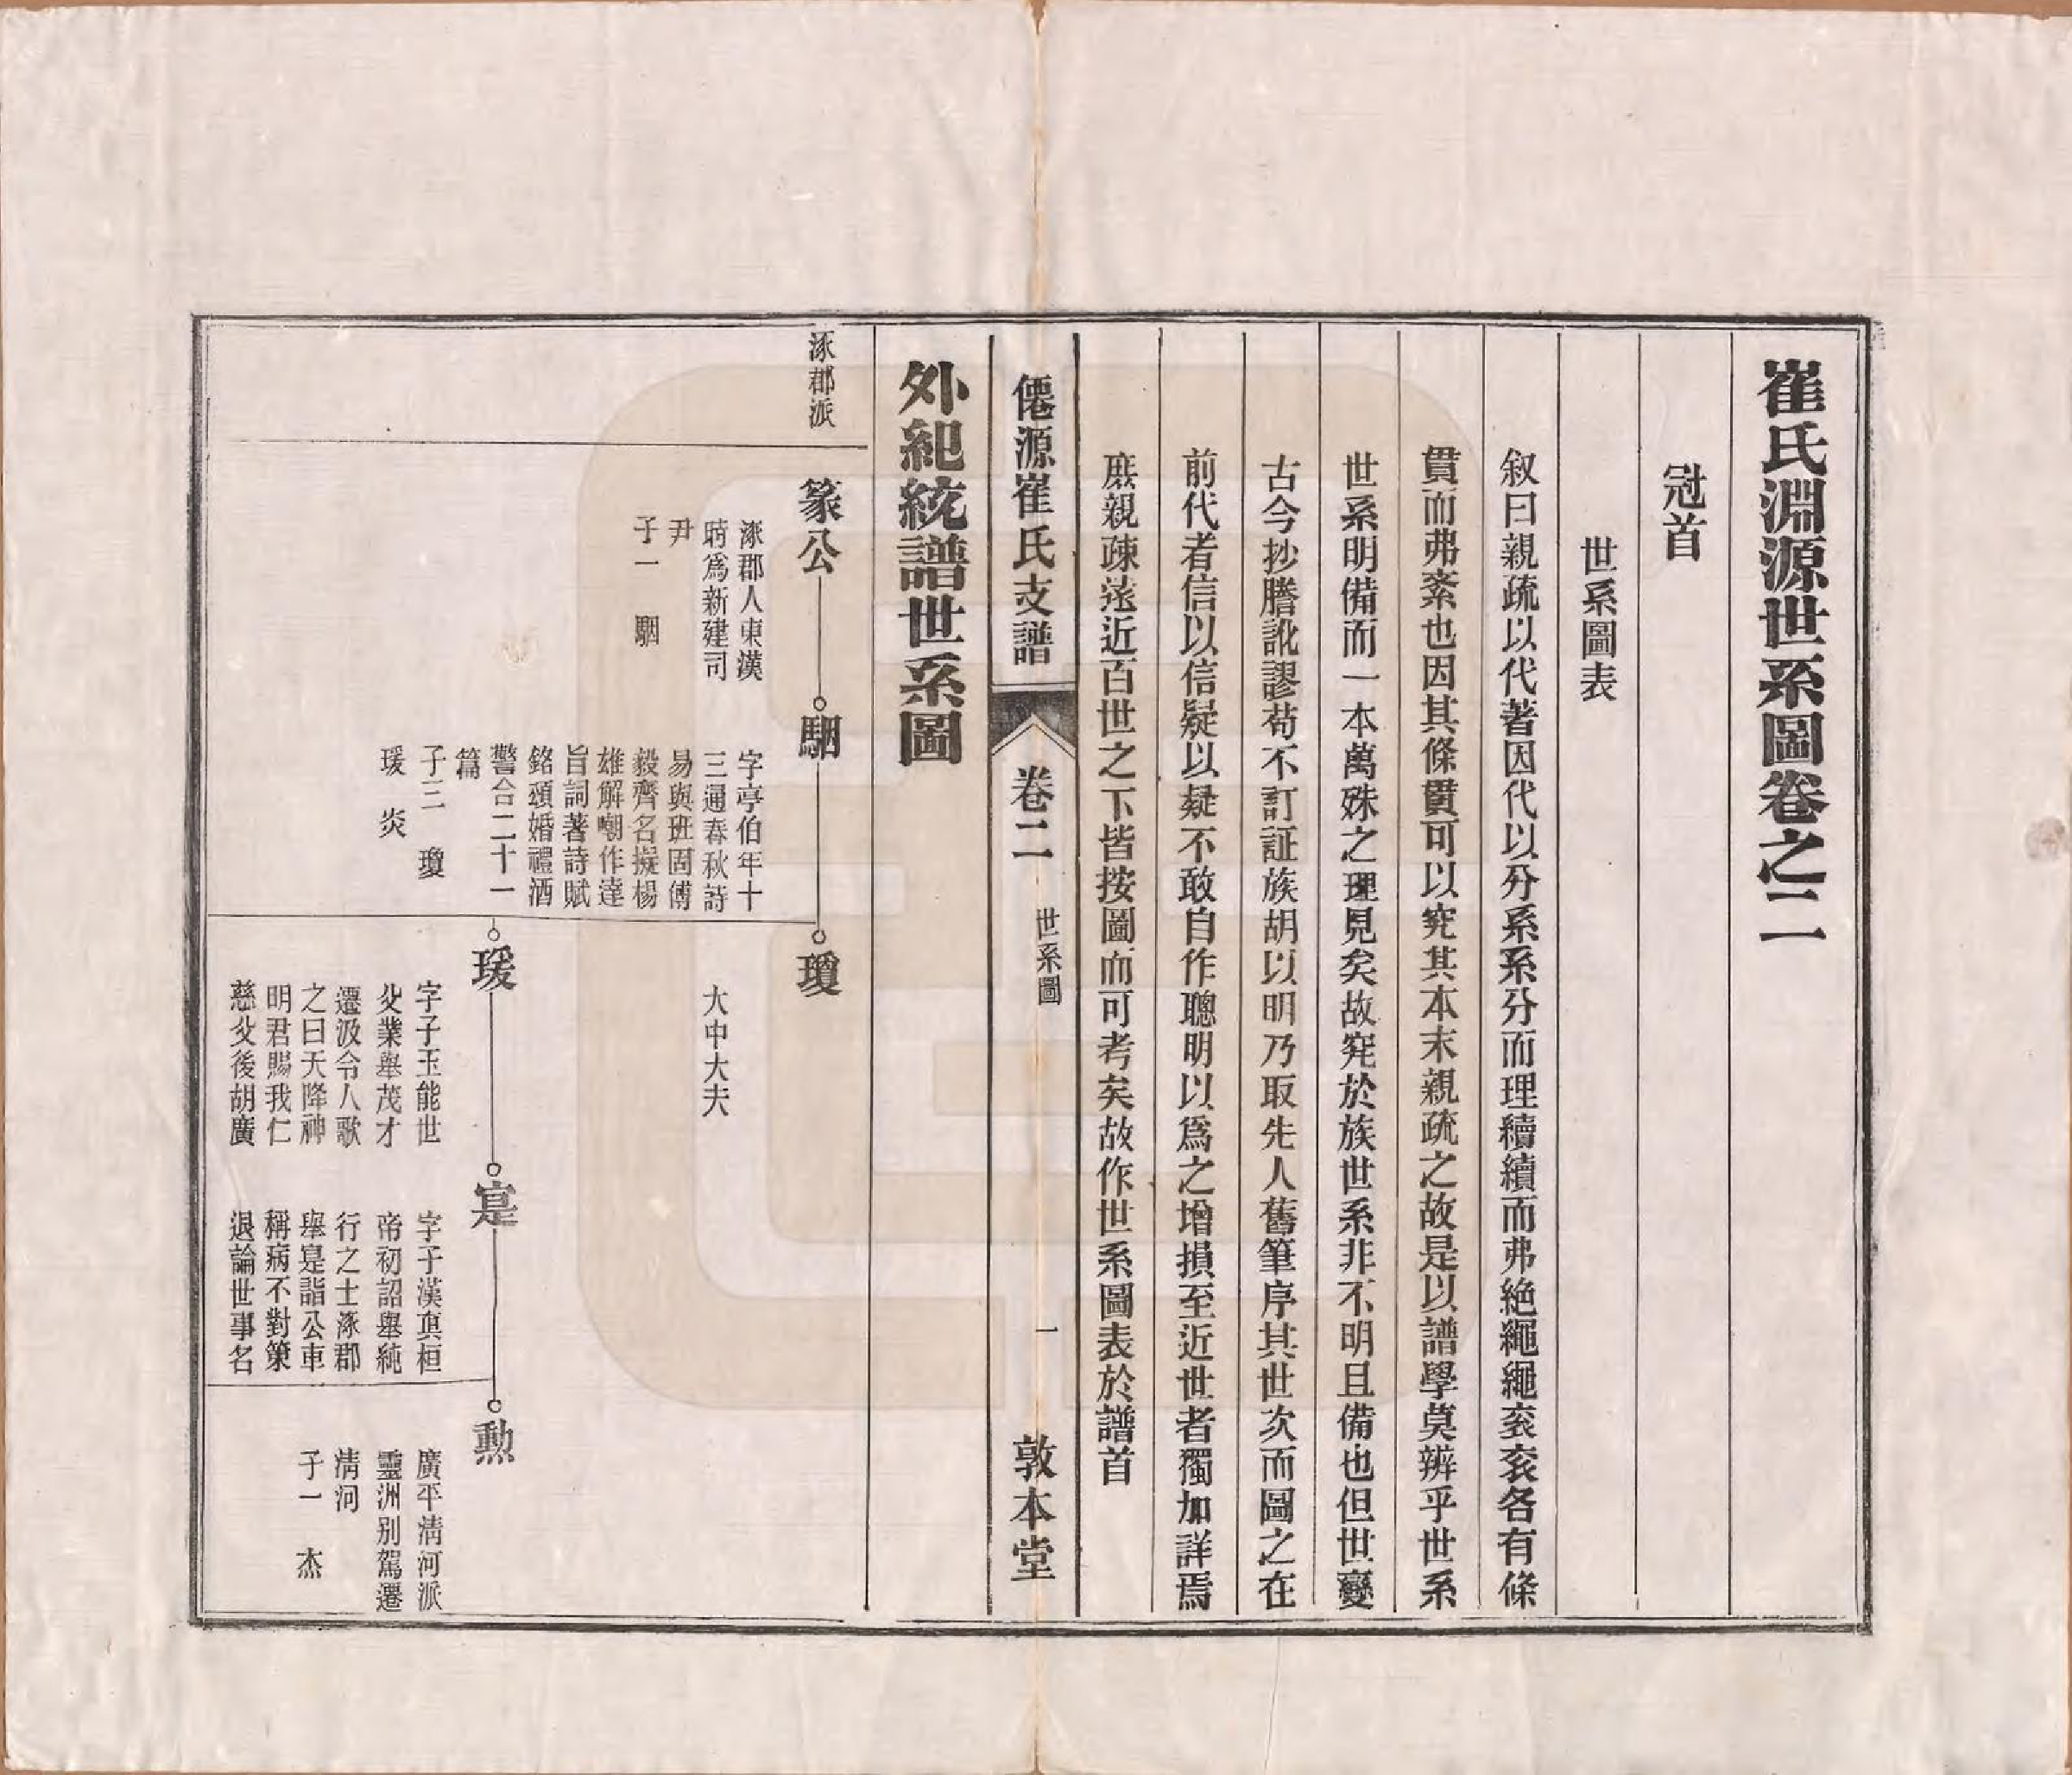 崔氏淵源世系圖卷之二
冠首
世系圖表
叙曰親疏以代著因代以分系系分而理續續而弗絶繩繩衮衮各有條
貫而弗紊也因其條貫可以究其本末親疏之故是以譜學莫辨乎世系
世系明備而一本萬殊之理見矣故究於族世系非不明且備也但世變
古今抄謄訛謬苟不訂証族胡以明乃取先人舊筆序其世次而圖之在
前代者信以信疑以疑不敢自作聰明以爲之增損至近世者獨加詳焉
庶親疎遠近百世之下皆按圖而可考矣故作世系圖表於譜首
僊源崔氏支譜
卷二
世系圖
一
敦本堂
外紀統譜世系圖
涿郡派
篆公
涿郡人東漢
時爲新建司
尹
子一 駰
駰
字亭伯年十
三通春秋詩
易與班固傅
毅齊名擬楊
雄解嘲作達
旨詞著詩賦
銘頌婚禮酒
警合二十一
篇
子三 瓊
瑗 炎
瓊
大中大夫
瑗
字子玉能世
父業舉茂才
遷汲令人歌
之曰天降神
明君賜我仁
慈父後胡廣
寔
字子漢真桓
帝初詔舉純
行之士涿郡
舉寔詣公車
稱病不對策
退論世事名
勲
廣平淸河派
靈洲别駕遷
淸河
子一 杰